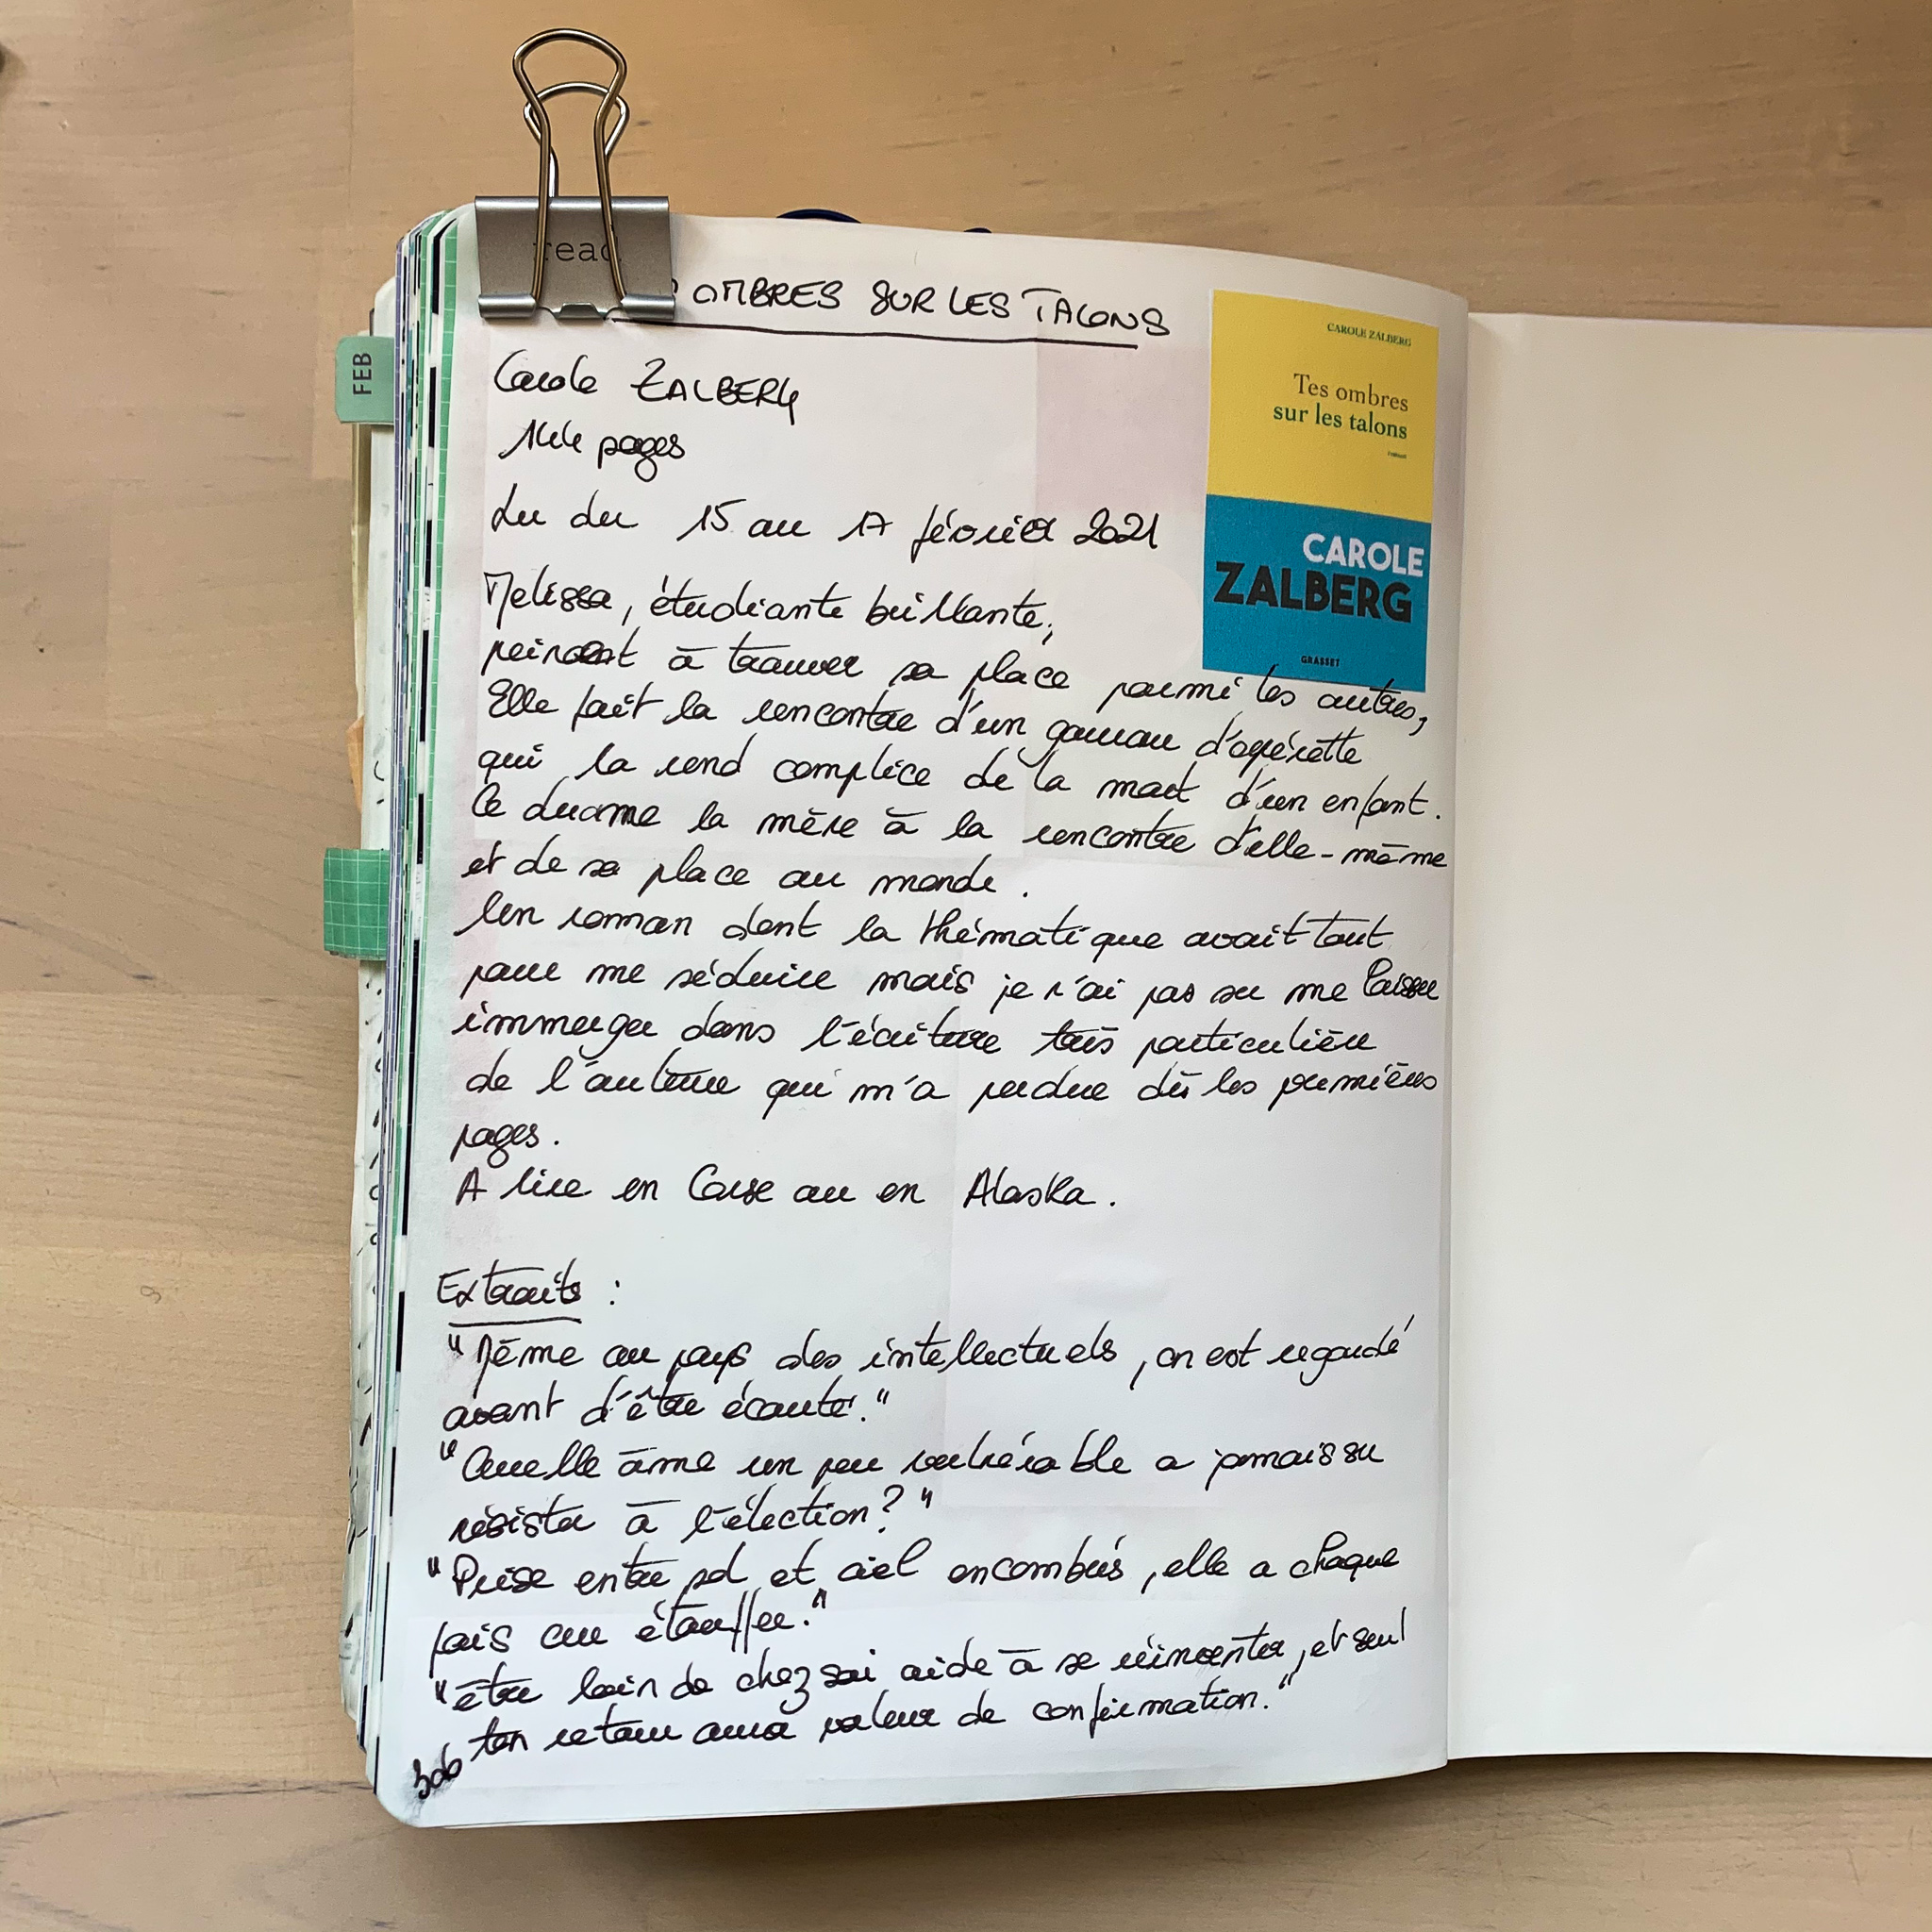 read
OMBRES SUR LES TALONS
Carole ZALBERG
144 pages
Lu du 15 au 17 février 2021
Melissa, étudiante brillante,
peinant à trouver sa place parmi les autres,
Elle fait la rencontre d'un gourou d'opérette
qui la rend complice de la mort d'un enfant.
Ce drame la mène à la rencontre d'elle-même
et de sa place au monde.
Un roman dont la thématique avait tout
pour me séduire mais je n'ai pas su me laisser
immerger dans l'écriture très particulière
de l'auteure qui m'a perdue dès les premières
pages.
A lire en Corse ou en Alaska.
Extraits :
"Même au pays des intellectuels, on est regardé
avant d'être écouté."
"Quelle âme un peu vulnérable a jamais su
résister à l'élection?"
"Prise entre sol et ciel encombrés, elle a chaque
fois cru étouffer."
"être loin de chez soi aide à se réinventer, et seul
ton retour aura valeur de confirmation."
CAROLE ZALBERG
Tes ombres
sur les talons
roman
CAROLE
ZALBERG
GRASSET
FEB